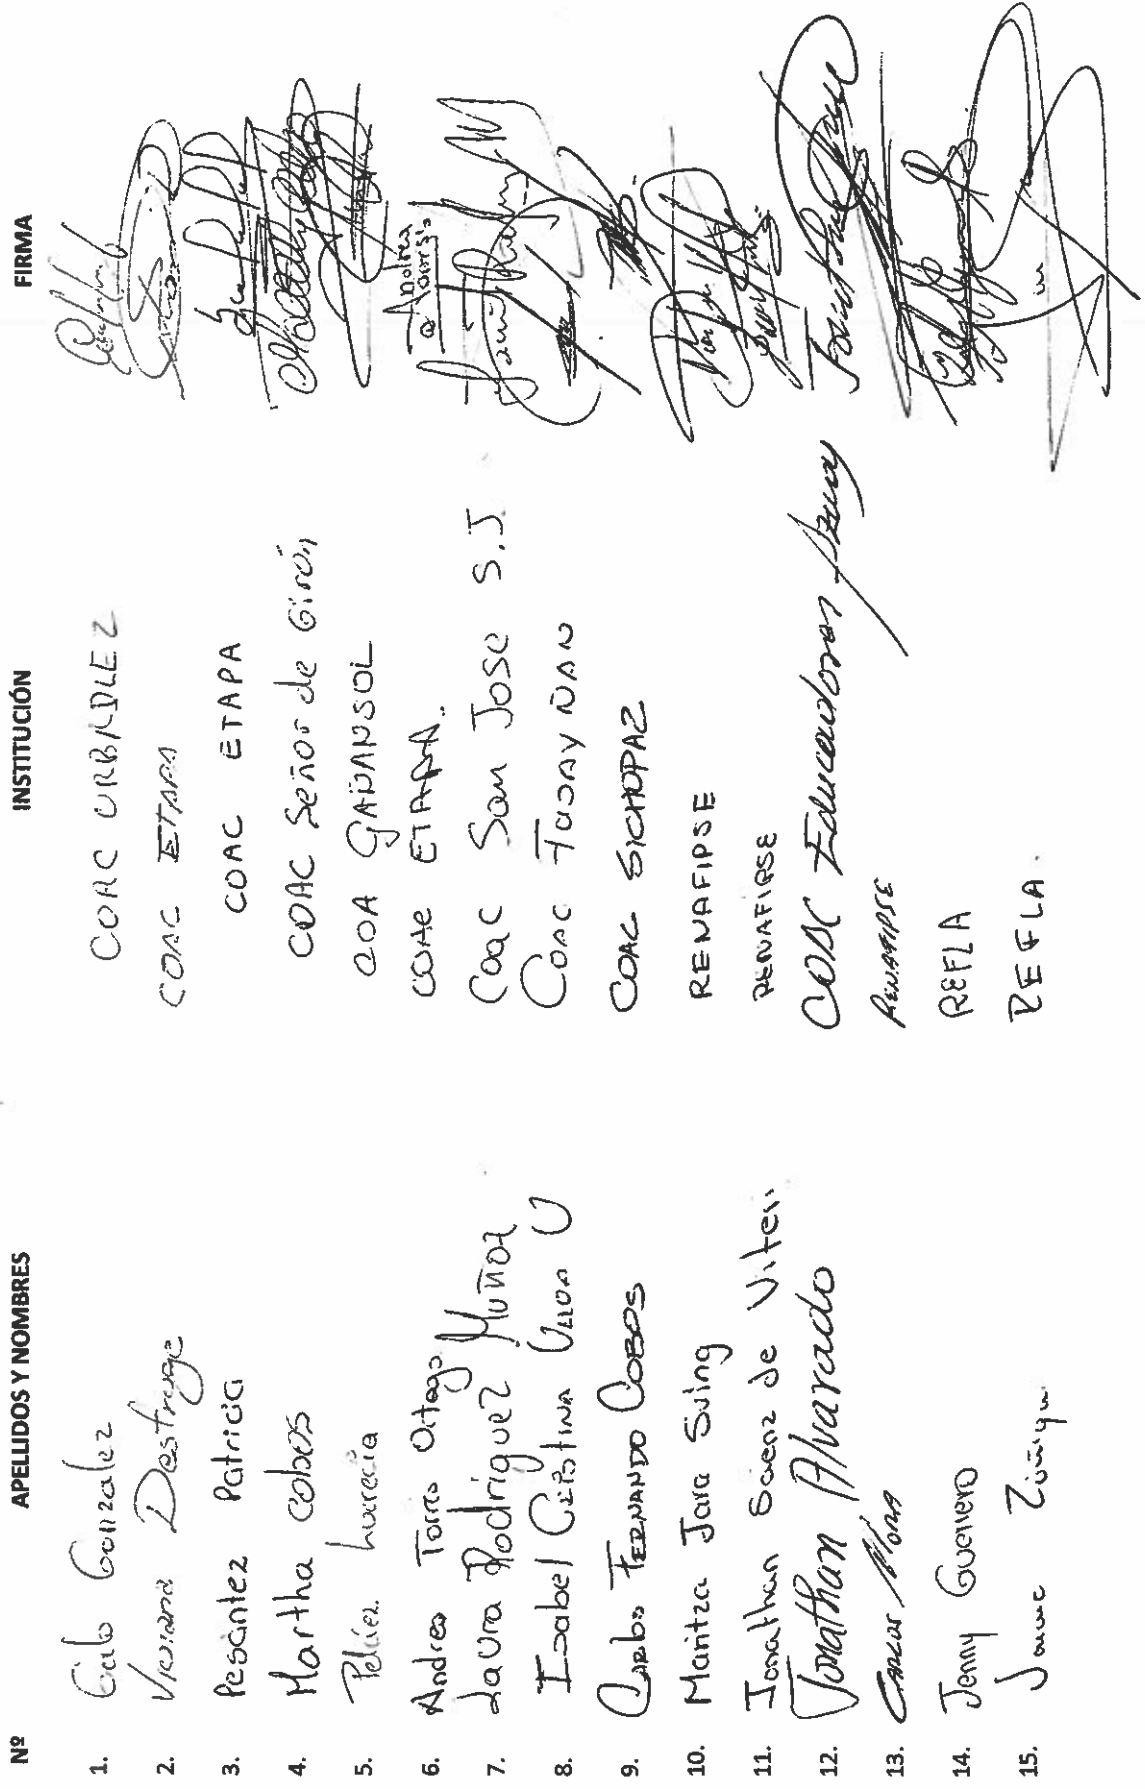 Nº APELLIDOS Y NOMBRES INSTITUCIÓN FIRMA
1. Galo Gonzalez COAC
2. Viviana Destruge COAC ETAPA
3. Pesántez Patricia COAC ETAPA
4. Martha Cobos COAC Señor de Girón
5. Peláez Lucrecia COA GAÑANSOL
6. Andrea Torres COAC ETAPA. Andrea
7. Laura Rodriguez Muñoz Coac San Jose S.J
8. Isabel Cristina Ulloa U COAC
9. Carlos FERNANDO COBOS COAC SICHOPAZ
10. Maritza Jara Suing RENAFIPSE
11. Jonathan Sáenz de Viteri RENAFIPSE
12. Jonathan Alvarado COAC Educadores Azuay
13. CARLOS MORA RENAFIPSE
14. Jenny Guerrero REFLA
15. Zúñiga REFLA.